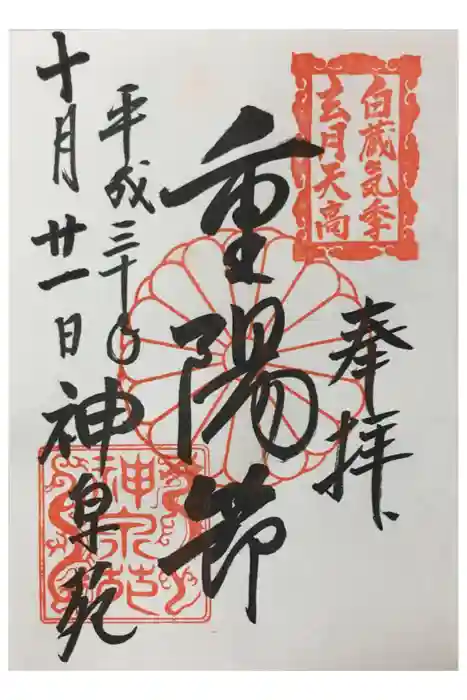 白蔵気季
玄月天高
奉拝
重陽節
平成三十〇
十月廿一日 神泉苑
神泉苑